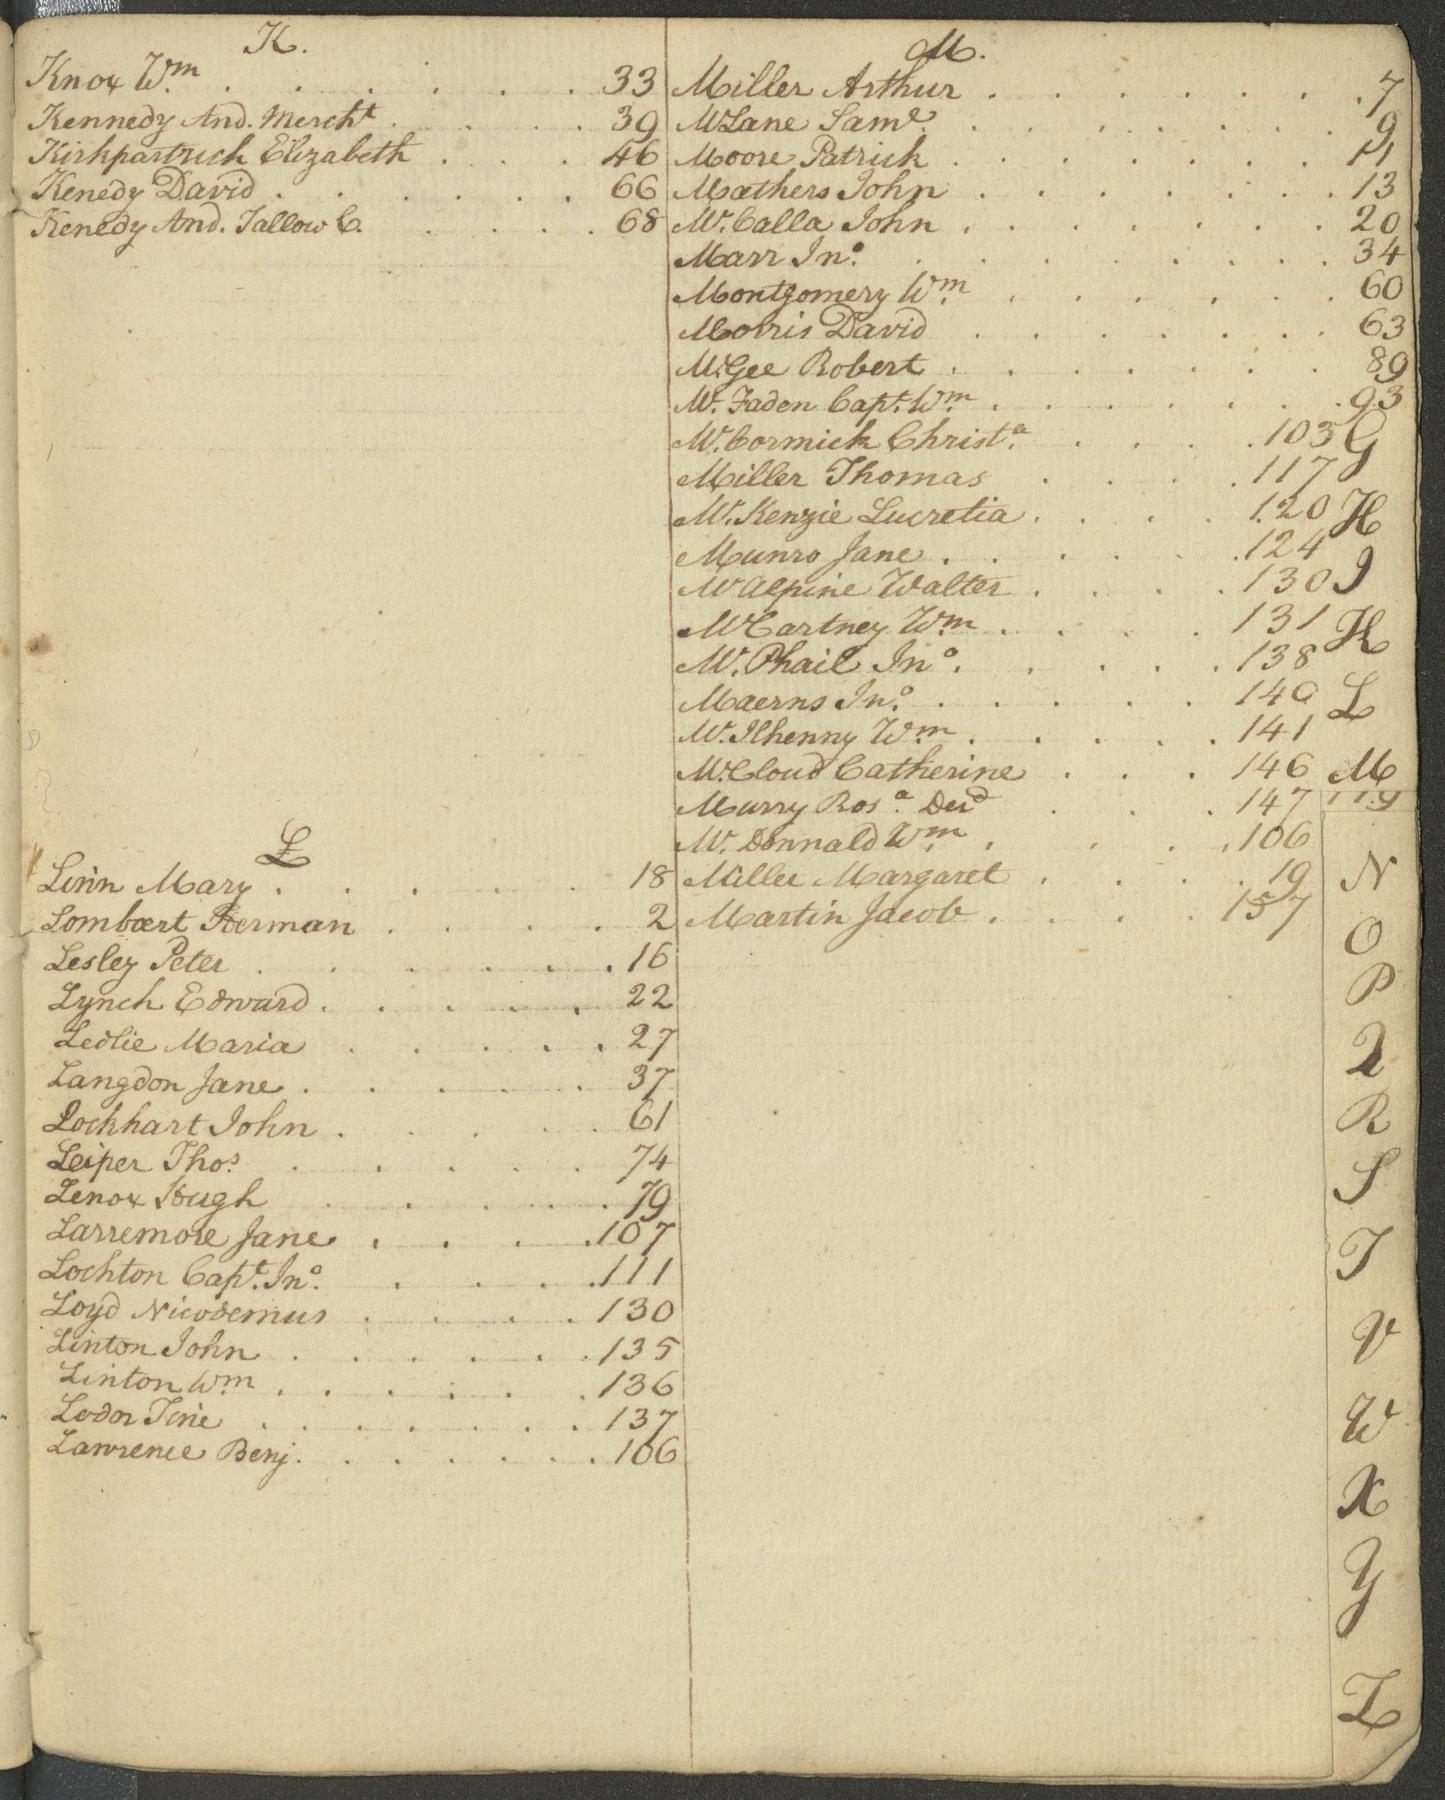 K.
Knox Wm. . . . . . . . 33
Kennedy And. Mercht . . . . . 39
Kirkpartrick Elizabeth . . . 46
Kenedy David . . . . . . 66
Kenedy And. Tallow C. . . . . 68
L
Linn Mary . . . . . . 18
Lombaert Herman . . . . 2
Lesley Peter . . . . . . 16
Lynch Edward . . . . . 22
Ledlie Maria . . . . . 27
Langdon Jane . . . . . 37
Lockhart John . . . . . 61
Leiper Thos. . . . . . 74
Lenox Hugh . . . . . 79
Larremore Jane . . . . 107
Lochton Capt. Jno. . . . . 111
Loyd Nicodemus . . . . 130
Linton John . . . . . . 135
Linton Wm . . . . . . 136
Lodor . . . . . . 137
Lawrence Benj. . . . . . . 106
M.
Miller Arthur . . . . . . . 7
McLane Saml. . . . . . . . 9
Moore Patrick . . . . . . . 11
Mathers John . . . . . . . 13
Mc.Calla John . . . . . . . 20
Marr Jno. . . . . . . . 34
Montgomery Wm . . . . . . 60
Morris David . . . . . . . 63
Mc.Gee Robert . . . . . . . 89
Mc.Faden Capt. Wm . . . . . . . 93
Mc.Cormick Christa. . . . . 103
Miller Thomas . . . . 117
Mc.Kenzie Lucretia . . . . 120
Munro Jane . . . . . 124
McAlpine Walter . . . . 130
McCartney Wm . . . . 131
Mc.Phail Jno. . . . . . 138
Maerns Jno. . . . . . 140
Mc.Ilhenny Wm . . . . . 141
Mc.Cloud Catherine . . . 146
Murry Rosa. Decd . . . 147
Mc.Donnald Wm . . . . 106
Miller Margaret . . . . 19
Martin Jacob . . . . 157
G
H
I
K
L
M
N
O
P
Q
R
S
T
V
W
X
Y
Z